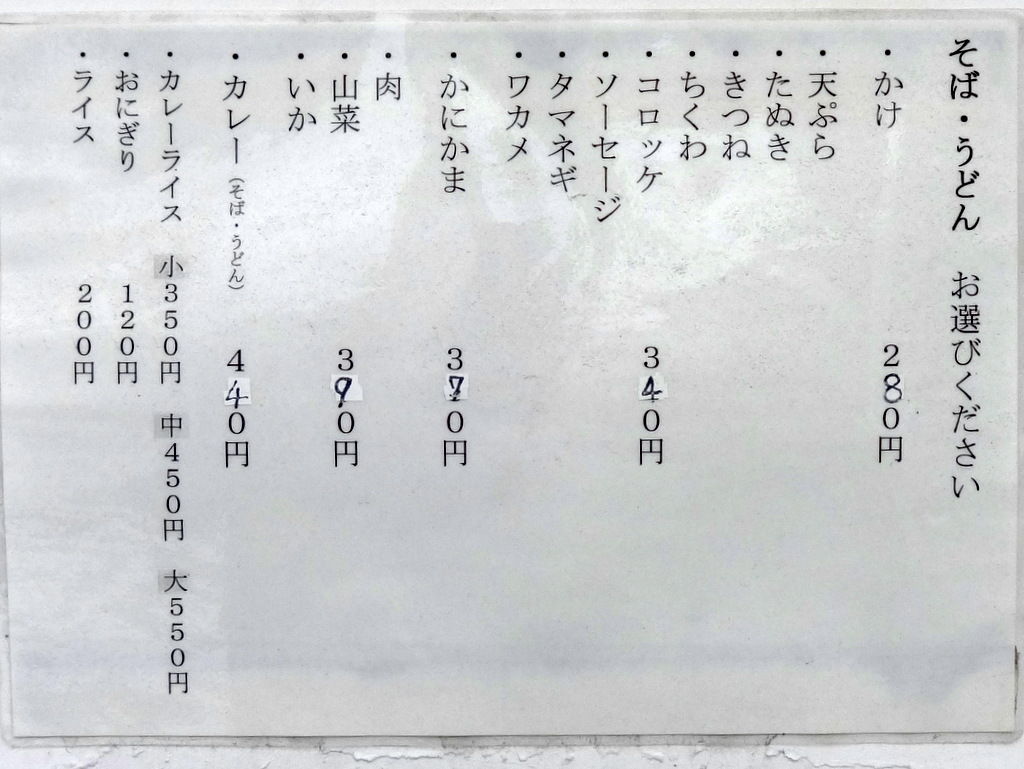 そば・うどん　お選びください
・かけ　280円
・天ぷら
・たぬき
・きつね
・ちくわ
・コロッケ　340円
・ソーセージ
・タマネギ
・ワカメ
・かにかま　370円
・肉
・山菜　390円
・いか
・カレー（そば・うどん）　440円
・カレーライス　小350円　中450円　大550円
・おにぎり　120円
・ライス　200円